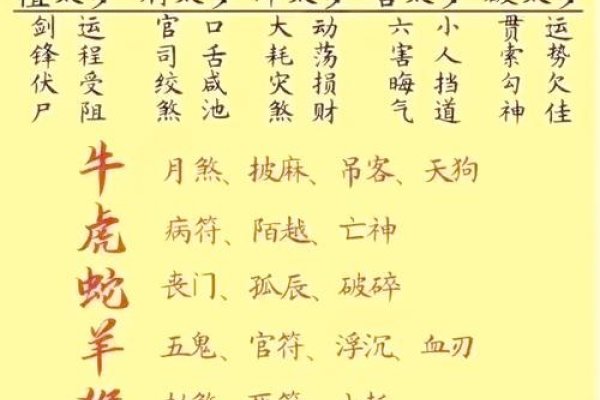 剑锋伏尸
运程受阻
官司绞煞
口舌咸池
大耗灾煞
动荡损财
六害晦气
小人挡道
贯索勾神
运势欠佳
牛 月煞、披麻、吊客、天狗
虎 病符、陌越、亡神
蛇 丧门、孤辰、破碎
羊 五鬼、官符、浮沉、血刃